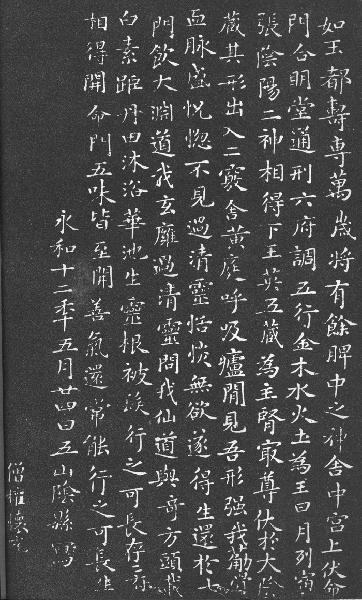 如玉都壽專萬歲將有餘脾中之神舍中宮上伏命
門合明堂通利六府調五行金木水火土為王日月列宿
張陰陽二神相得下玉英五藏為主腎最尊伏於大陰
藏其形出入二竅舍黃庭呼吸廬間見吾形强我筋骨
血脉盛恍惚不見過清靈恬惔無欲遂得生還於七
門飲大淵道我玄雍過清靈問我仙道與奇方頭載
白素距丹田沐浴華池生靈根被髮行之可長存二府
相得開命門五味皆至開善氣還常能行之可長生
永和十二年五月廿四日五山陰縣寫
僧權懷充